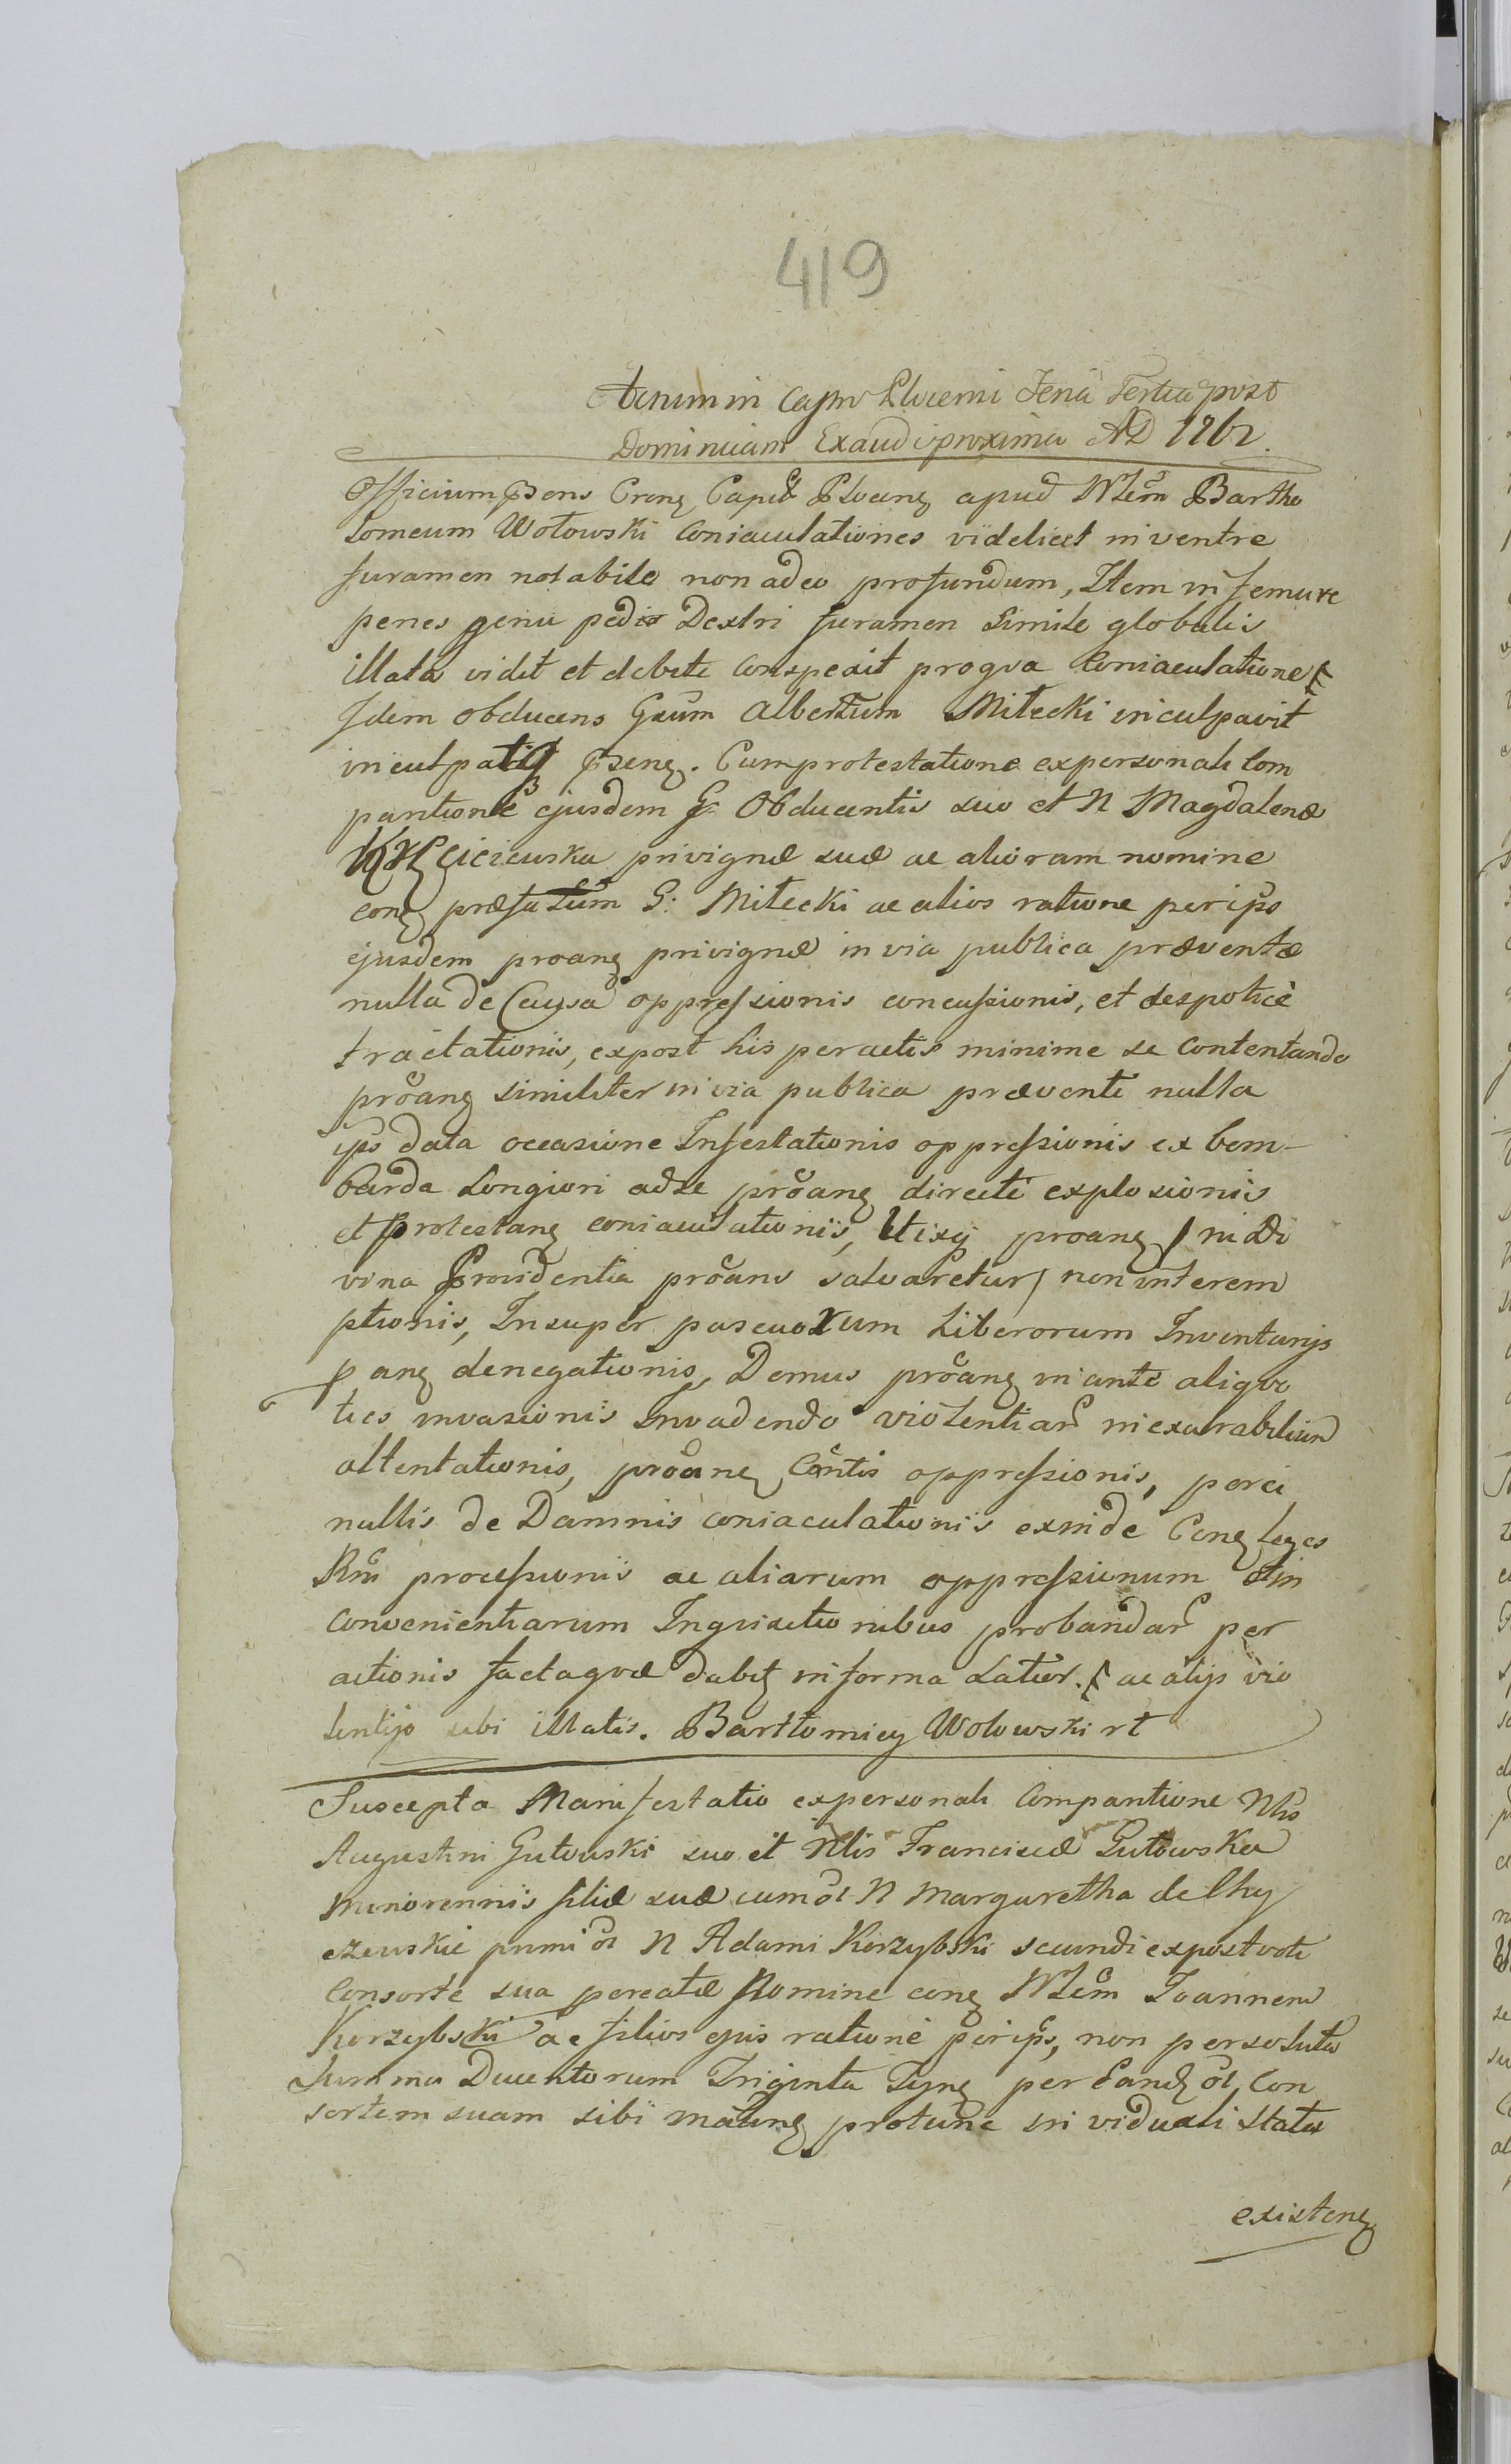 419
Actum in Castro Plocensi Feria Tertia post
Dominicam Exaudi proxima AD 1762.
Officium Psens Crens Capit Plocens apud Nlem Bartho
lomeum Wołowski Coniaculationes videlicet in ventre
furamen notabile non adeo profundum, Item in femure
penes genu pedis Dextri furamen Simile globulis
illata vidit et debite conspexit pro qva Coniaculatione
Idem obducens Gsum Albertum Miłecki inculpavit
inculpatq psens. Cum protestatione ex personali Com
paritione ejusdem G Obducentis suo et N Magdalenæ
ciciewska privignæ suæ ac alioram nomine
conq præfatum G: Miłecki ac alios ratione per ips
ejusdem proanq privignæ in via publica præventæ
nulla de Causa oppressionis concussionis, et despoticè
tractationis, expost his peractis minime se contentando
proanq similiter in via publica præventi nulla
ips data occasione Infestationis oppressionis ex bom-
barda Longiori ad se proanq directè explosionis
et protestanq coniaculationis, proanq ni Di
vina Providentia proans salvaretur non interem
ptionis, Insuper pascuorum Liberorum Inventarijs
p anq denegationis, Domus proanq in ante aliqvo
ties invasionis Invadendo violentiar inexorabilium
attentationis, proanq Contis oppressionis, porci
nullis de Damnis coniaculationis exinde Conq leges
Rni processionis ac aliarum oppressionum et in
convenientiarum Inqvisitionibus probandar per
actionis factaqve dabit in forma Latior. ac alijs vio
lentijs sibi illatis. Bartłomiey Wołowski rt
Suscepta Manifestatio ex personali Comparitione Nlis
Augustini Gutowski suo et Nlis Franciscæ Gutowska
minorennis filiæ suæ cum ol N Margaretha de Chy
czewskie primi ol N Adami Korzybski secundi expost voti
Consorte sua procreatæ Nomine conq Nlem Joannem
Korzybski ac filios ejus ratione per ips, non persoluta
Summa Ducentorum Triginta Tynq per Eandq ol Con
sortem suam sibi protunc in viduali Statu
existenq